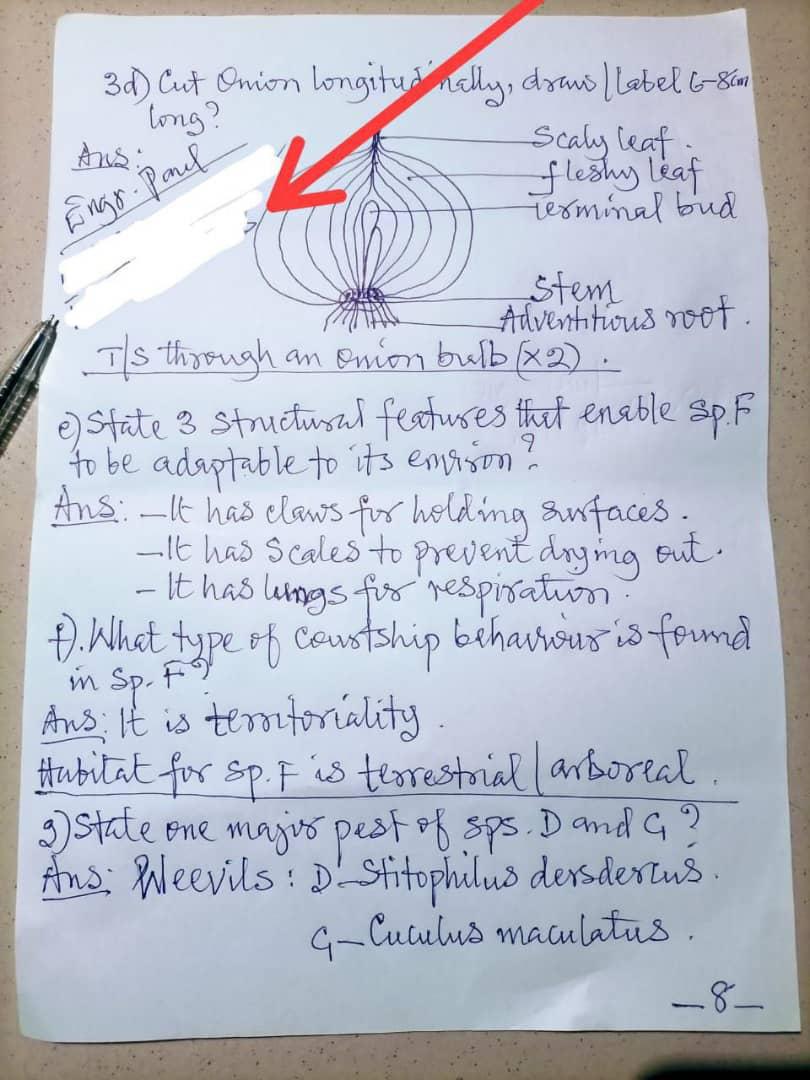 3d) Cut Onion longitudinally, draw/label 6-8cm
long?
Ans:
Engr. Paul
Scaly leaf.
fleshy leaf
terminal bud
Stem
Adventitious root.
T/S through an onion bulb (x2).
e) State 3 structural features that enable sp.F
to be adaptable to its environ?
Ans: - It has claws for holding surfaces.
- It has Scales to prevent drying out.
- It has lungs for respiration.
f). What type of courtship behaviour is found
in Sp. F?
Ans: It is territoriality.
Habitat for sp. F is terrestrial/arboreal.
g) State one major pest of sps. D and G?
Ans: Weevils: D - Stitophilus dersdercus.
G - Cuculus maculatus.
- 8 -